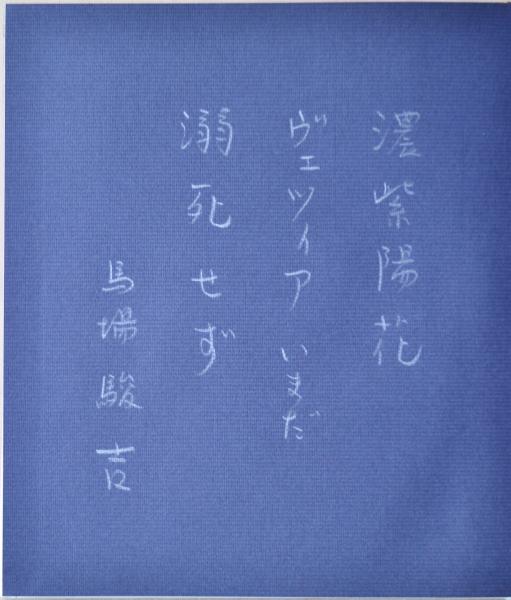 濃紫陽花
ヴェツィアいまだ
溺死せず
馬場駿吉